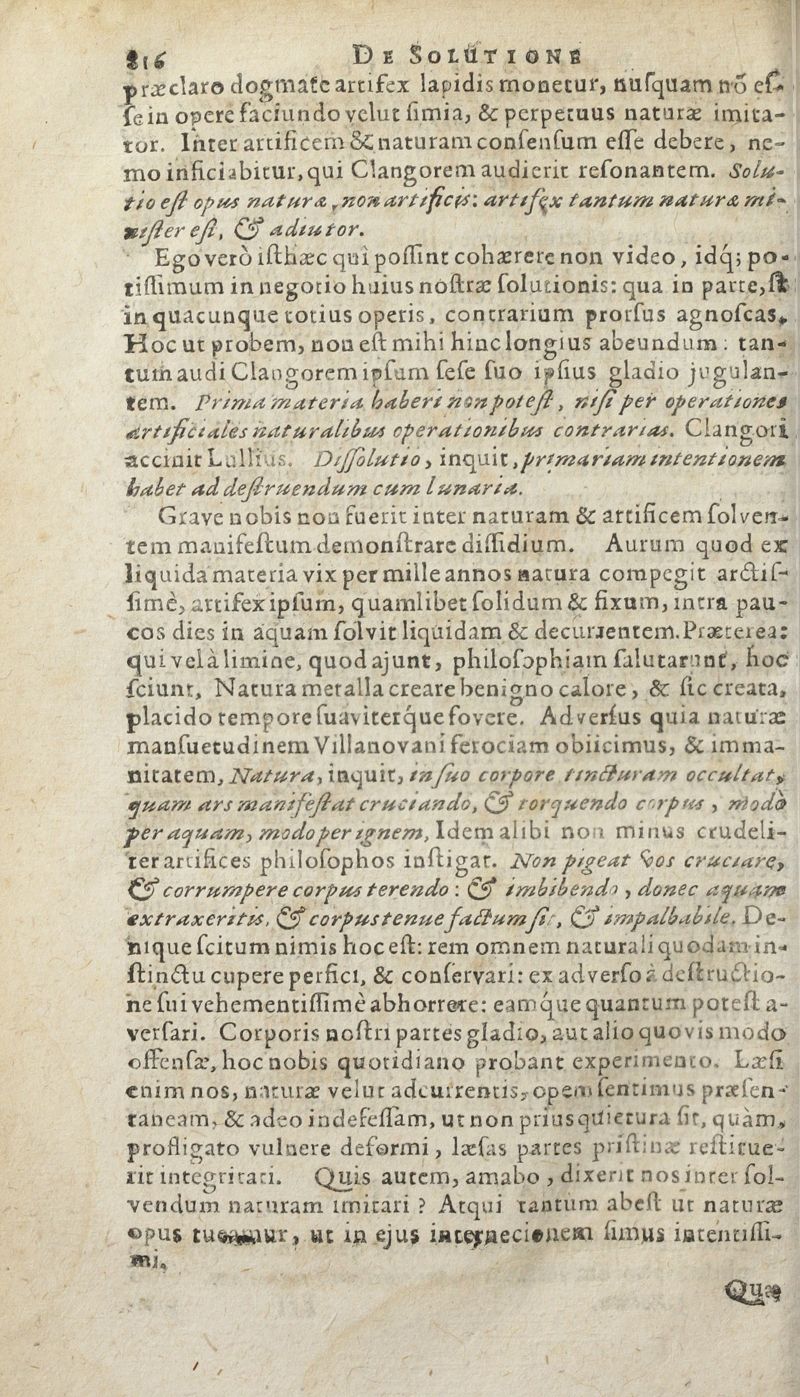 216 DE SOLUTIONE
præclaro dogmate artifex lapidis monetur, nuſquam nō eſ-
ſe in opere faciundo velut ſimia, & perpetuus naturæ imita-
tor. Inter artificem & naturam conſenſum eſſe debere, ne-
mo inficiabitur, qui Clangorem audierit reſonantem. Solu-
tio eſt opus naturæ, non artificis: artifex tantum naturæ mi-
niſter eſt, & adiutor.
Ego verò iſthæc qui poſſint cohærere non video, idq; po-
tiſſimum in negotio huius noſtræ ſolutionis: qua in parte, ſi
in quacunque totius operis, contrarium prorſus agnoſcas.
Hoc ut probem, non eſt mihi hinc longius abeundum: tan-
tum audi Clangorem ipſum ſeſe ſuo ipſius gladio jugulan-
tem. Prima materia haberi non poteſt, niſi per operationes
artificiales naturalibus operationibus contrarias. Clangori
accinit Lullius. Diſſolutio, inquit, primariam intentionem
habet ad deſtruendum cum lunaria.
Grave nobis non fuerit inter naturam & artificem ſolven-
tem manifeſtum demonſtrare diſſidium. Aurum quod ex
liquida materia vix per mille annos natura compegit arctiſ-
ſimè, artifex ipſum, quamlibet ſolidum & fixum, intra pau-
cos dies in aquam ſolvit liquidam & decurrentem. Præterea:
qui vel à limine, quod ajunt, philoſophiam ſalutarunt, hoc
ſciunt, Natura metalla creare benigno calore, & ſic creata,
placido tempore ſuaviterque fovere. Adverſus quia naturæ
manſuetudinem Villanovani ferociam obiicimus, & imma-
nitatem, Natura, inquit, in ſuo corpore tincturam occultat,
quam ars manifeſtat cruciando, & torquendo corpus, modò
per aquam, modo per ignem, Idem alibi non minus crudeli-
ter artifices philoſophos inſtigat. Non pigeat vos cruciare,
& corrumpere corpus terendo: & imbibendo, donec aquam
extraxeritis, & corpus tenue factum ſit, & impalbabile. De-
nique ſcitum nimis hoc eſt: rem omnem naturali quodam in-
ſtinctu cupere perfici, & conſervari: ex adverſo à deſtructio-
ne ſui vehementiſſimè abhorrere: eamque quantum poteſt a-
verſari. Corporis noſtri partes gladio, aut alio quovis modo
offenſæ, hoc nobis quotidiano probant experimento. Læſi
enim nos, naturæ velut adcurrentis, opem ſentimus præſen-
taneam, & adeo indefeſſam, ut non prius quietura ſit, quàm,
profligato vulnere deformi, læſas partes priſtinæ reſtitue-
rit integritati. Quis autem, amabo, dixerit nos inter ſol-
vendum naturam imitari? Atqui tantum abeſt ut naturæ
opus tueamur, ut in ejus internecionem ſimus intentiſſi-
mi.
Quæ